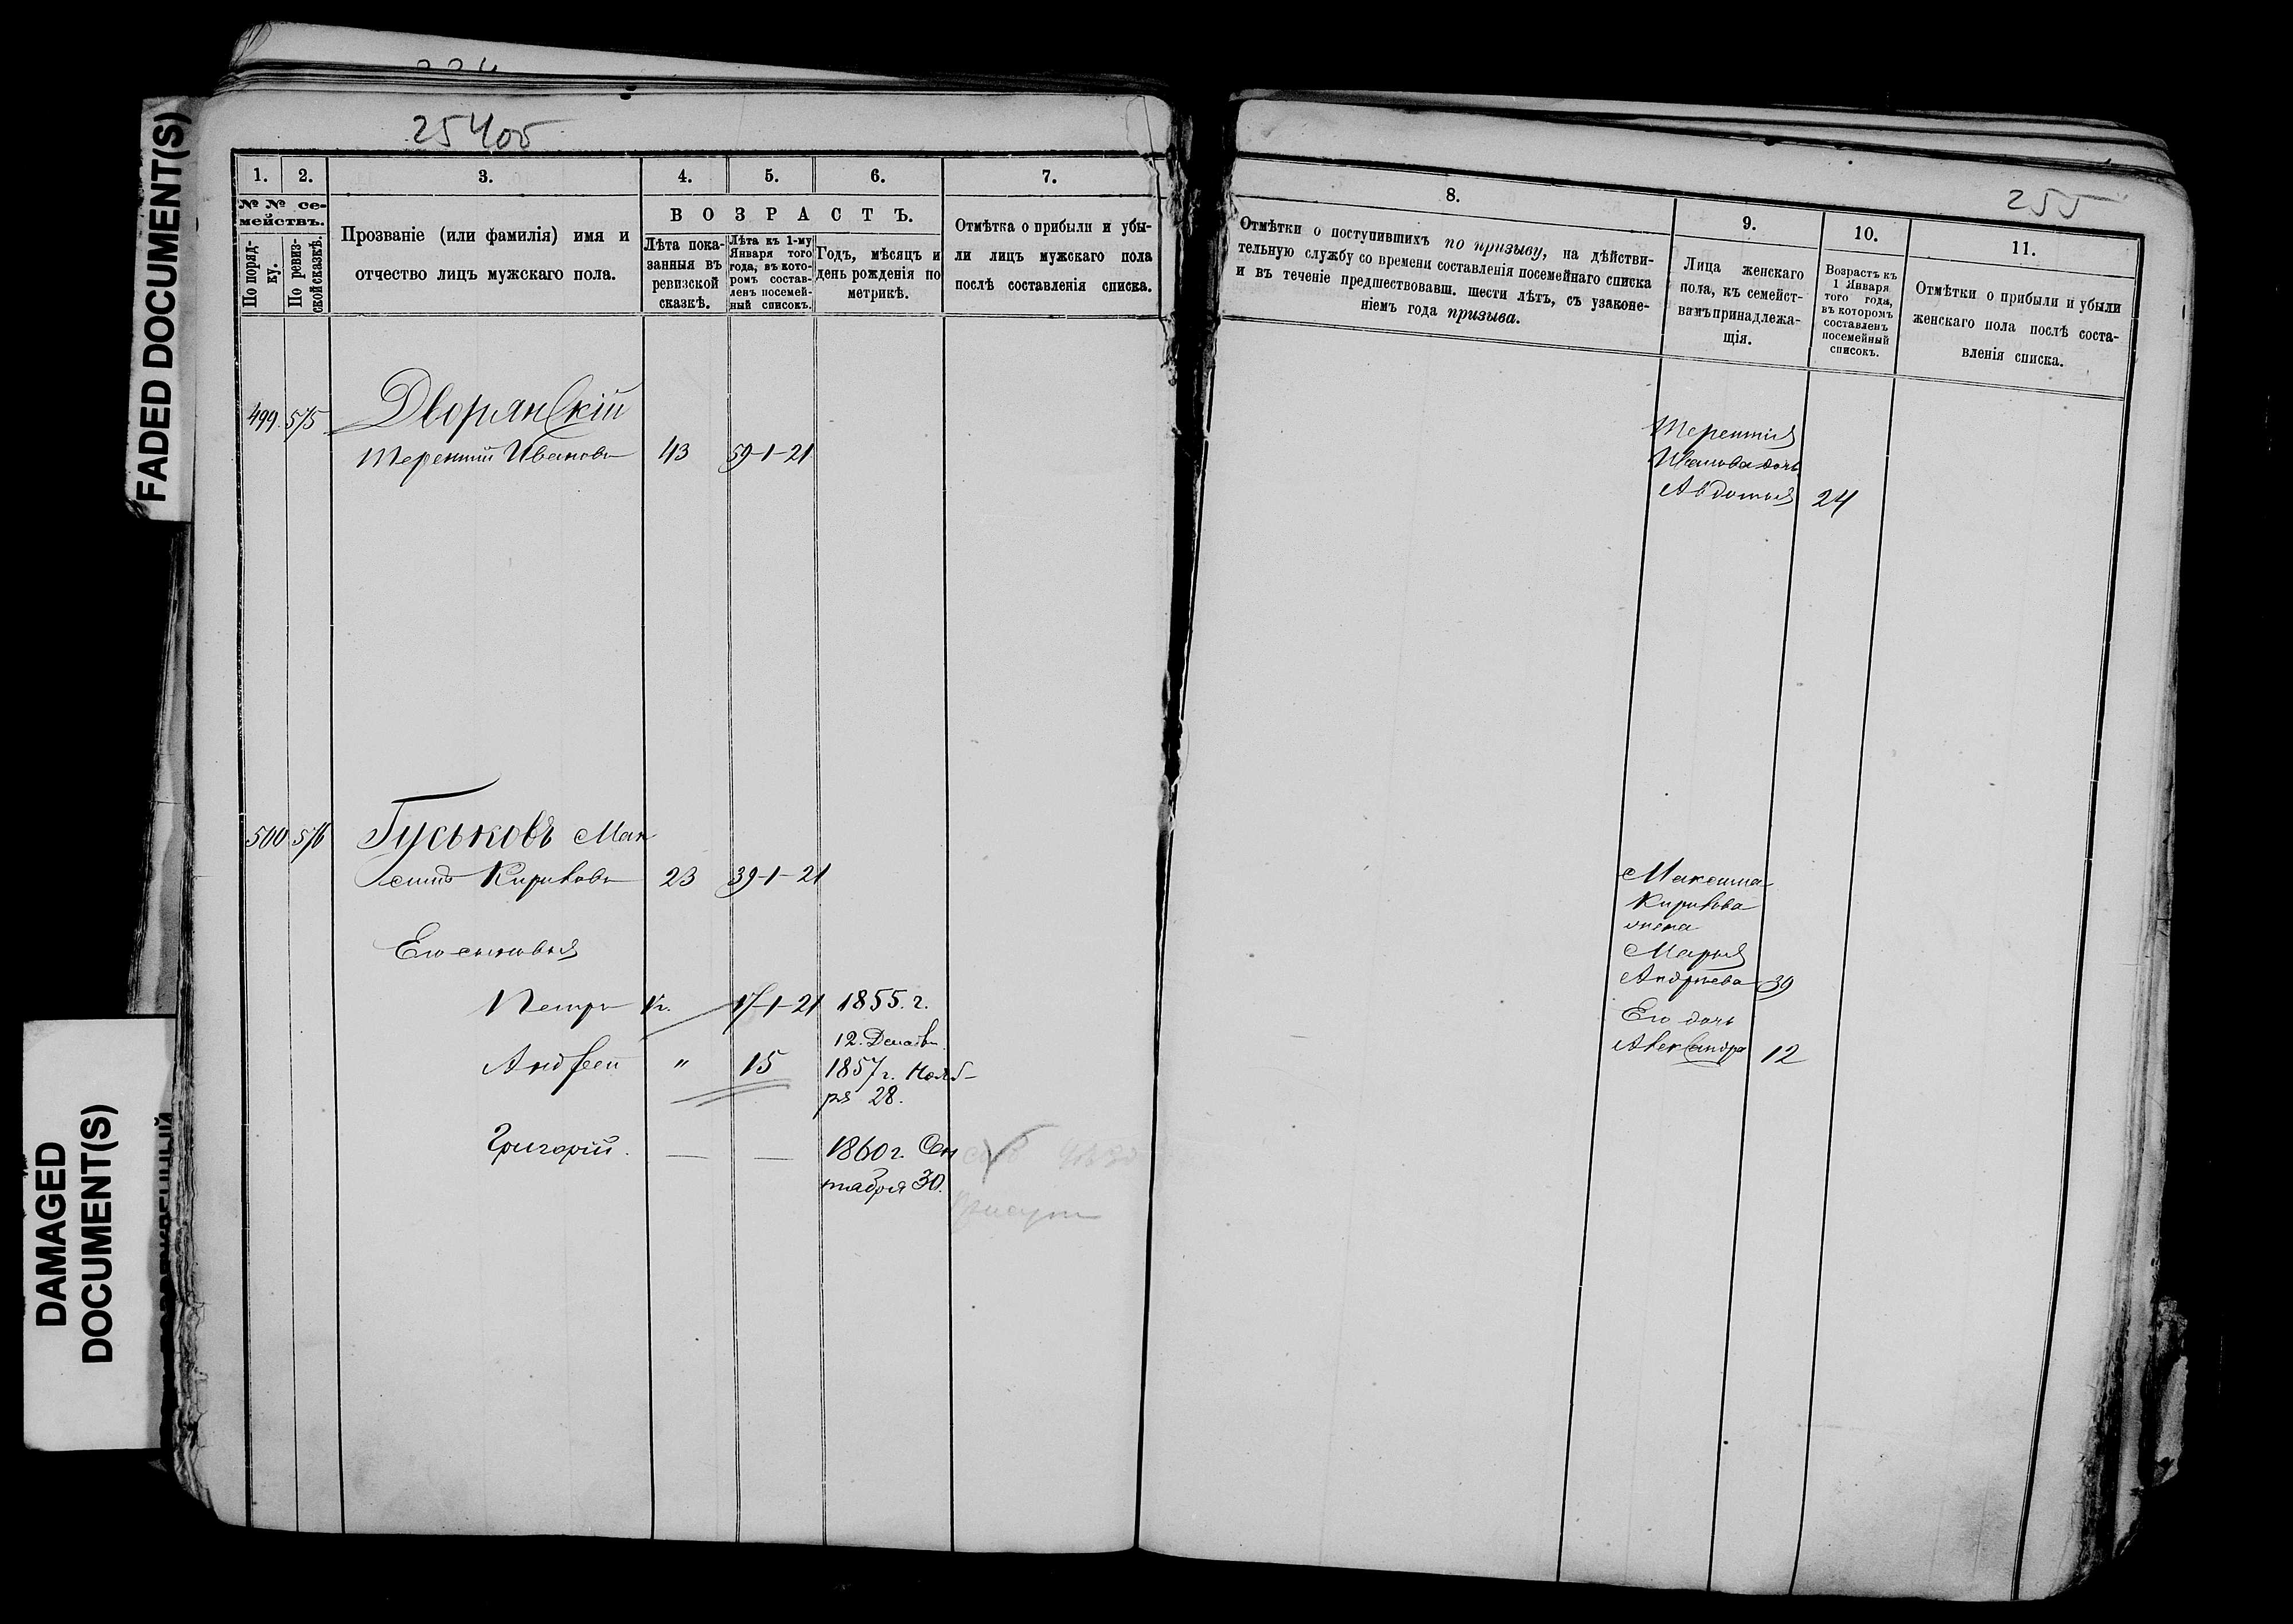 FADED DOCUMENT(S)
DAMAGED
DOCUMENT(S)
254об
1. 2. 3. 4. 5. 6. 7.
№ № се-
мействъ.
По поряд-
ку.
По ревиз-
ской сказкѣ.
Прозваніе (или фамилія) имя и
отчество лицъ мужскаго пола.
ВОЗРАСТЪ.
Лѣта пока-
занныя въ
ревизской
сказкѣ.
Лѣта къ 1-му
Января того
года, въ кото-
ромъ состав-
ленъ посемей-
ный списокъ.
Годъ, мѣсяцъ и
день рожденія по
метрикѣ.
Отмѣтка о прибыли и убы-
ли лицъ мужскаго пола
послѣ составленія списка.
499 575 Дворянскій
Терентій Ивановъ 43 59-1-21
500 576 Гуськовъ Мак
симъ Кириковъ 23 39-1-21
Его сыновья
Петръ 17-1-21 1855. г.
12. Декабр.
Андрей " 15 1857 г. Нояб-
ря 28.
Григорій. — — 1860 г. Сен
тября 30.
255
8. 9. 10. 11.
Отмѣтки о поступившихъ по призыву, на дѣйстви-
тельную службу со времени составленія посемейнаго списка
и въ теченіе предшествовавш. шести лѣтъ, съ узаконе-
ніемъ года призыва.
Лица женскаго
пола, къ семейст-
вамъ принадлежа-
щія.
Возрастъ къ
1 Января
того года,
въ которомъ
составленъ
посемейный
списокъ.
Отмѣтки о прибыли и убыли
женскаго пола послѣ соста-
вленія списка.
Терентія
Иванова дочь
Авдотья 24
Максима
Кирикова
жена
Марья
Андреева 39
Его дочь
Александра 12